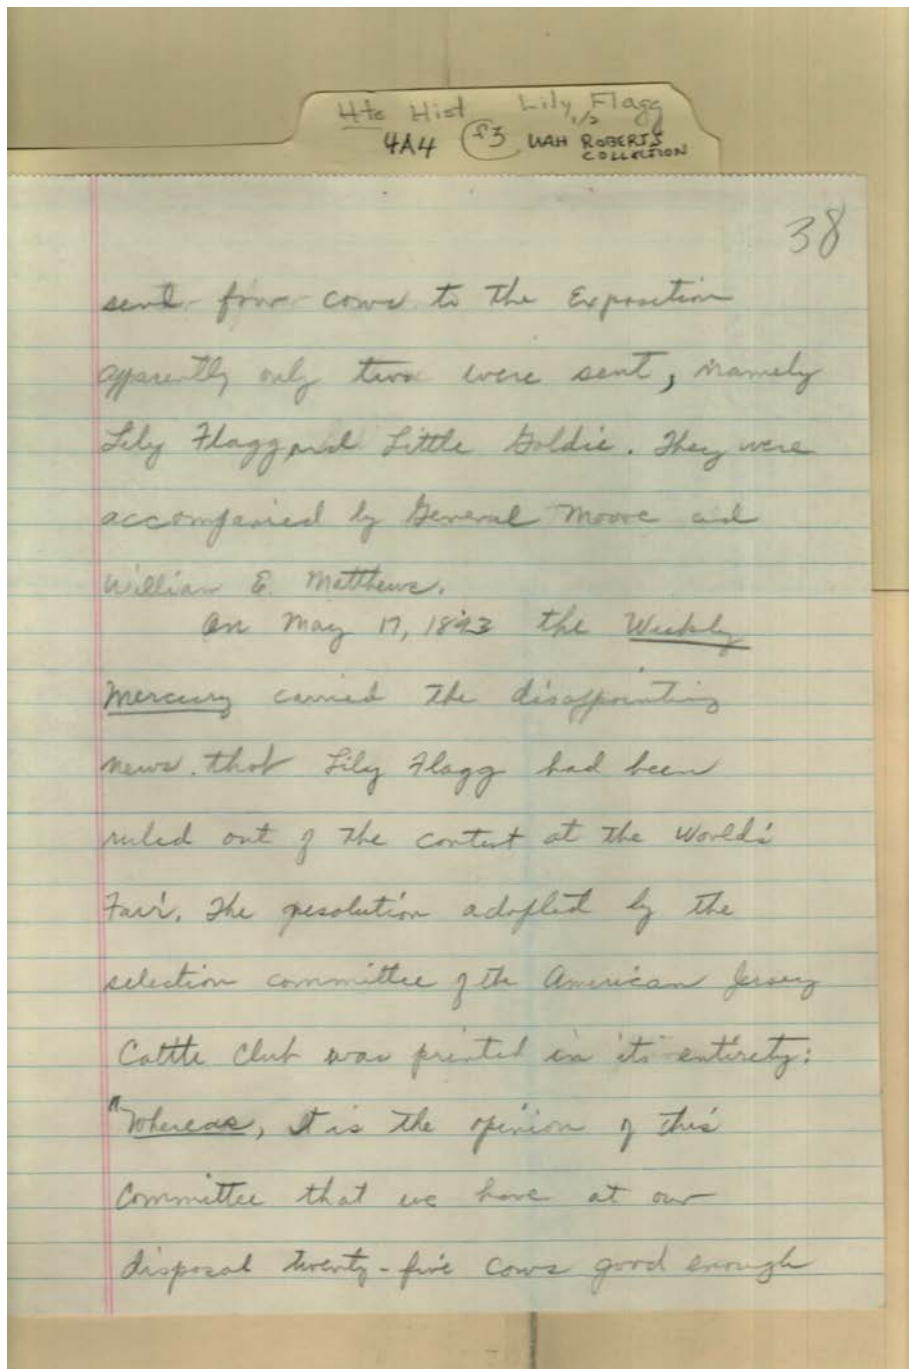 Hts Hist Lily Flagg
1/2
4A4 f3 UAH ROBERTS
COLLECTION
38
sent four cows to the Exposition
apparently only two were sent, namely
Lily Flagg and Little Goldie. They were
accompanied by General Moore and
William E. Matthews.
On May 17, 1893 the Weekly
Mercury carried the disappointing
news that Lily Flagg had been
ruled out of the contest at the World's
Fair. The resolution adopted by the
selection committee of the American Jersey
Cattle Club was printed in its entirety:
"Whereas, it is the opinion of this
Committee that we have at our
disposal twenty-five cows good enough